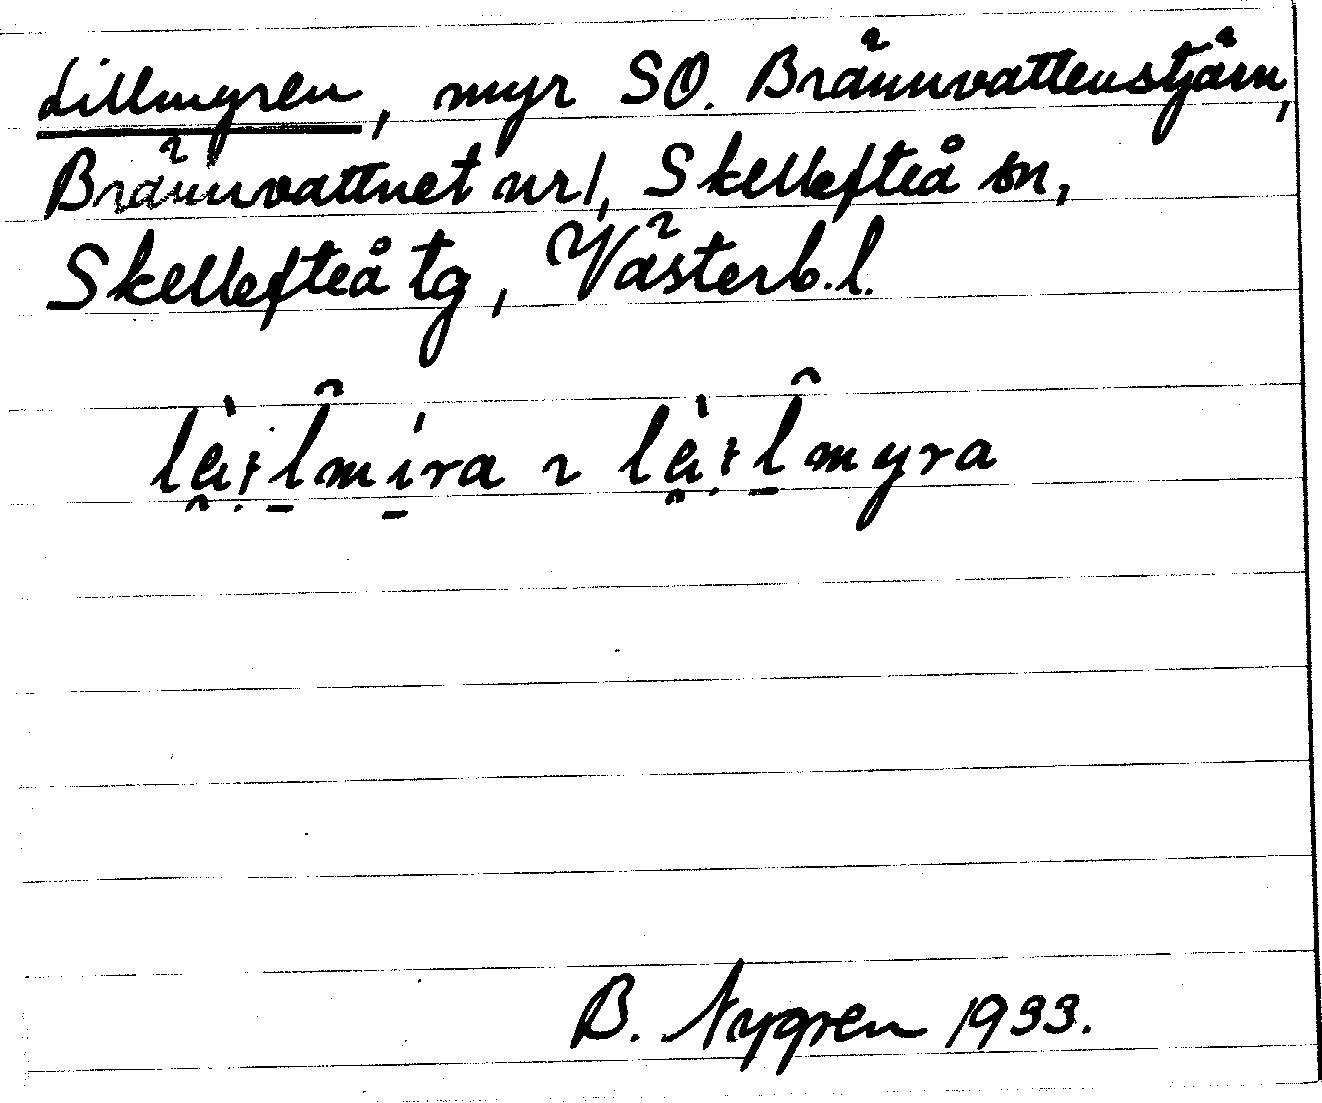 Lillmyren, myr SO. Brännvattenstjärn,
Brännvattnet nr 1, Skellefteå sn,
Skellefteå tg, Västerb. l.
B. Nygren 1933.